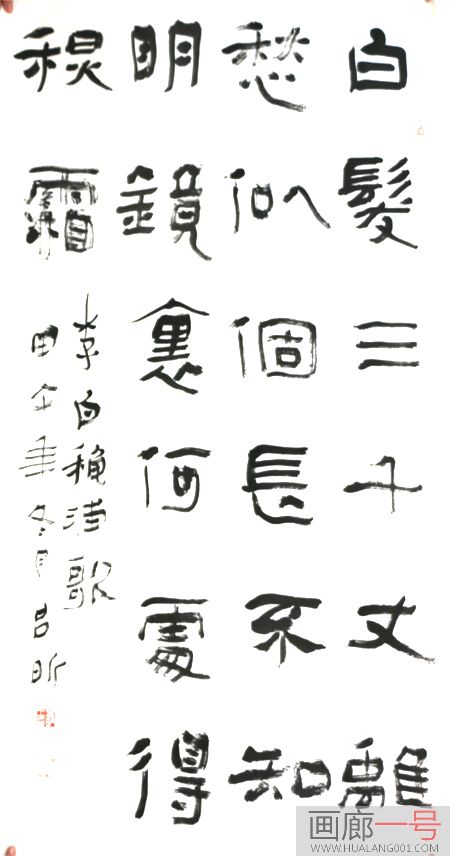 白髮三千丈離
愁似個長不知
明鏡裏何處得
秋霜
李白秋浦歌
甲午年冬月吕昕
画廊一号
WWW.HUALANG001.COM